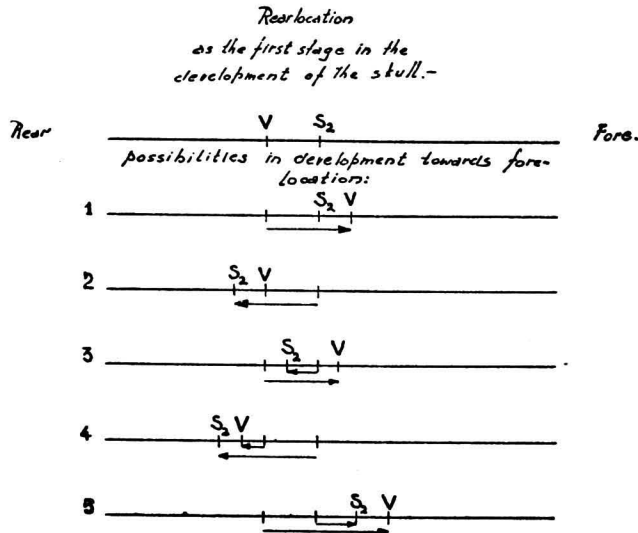 Rearlocation
as the first stage in the
development of the skull.-
Rear V S₂ Fore.
possibilities in development towards fore-
location:
1 S₂ V
2 S₂ V
3 S₂ V
4 S₂ V
5 S₂ V